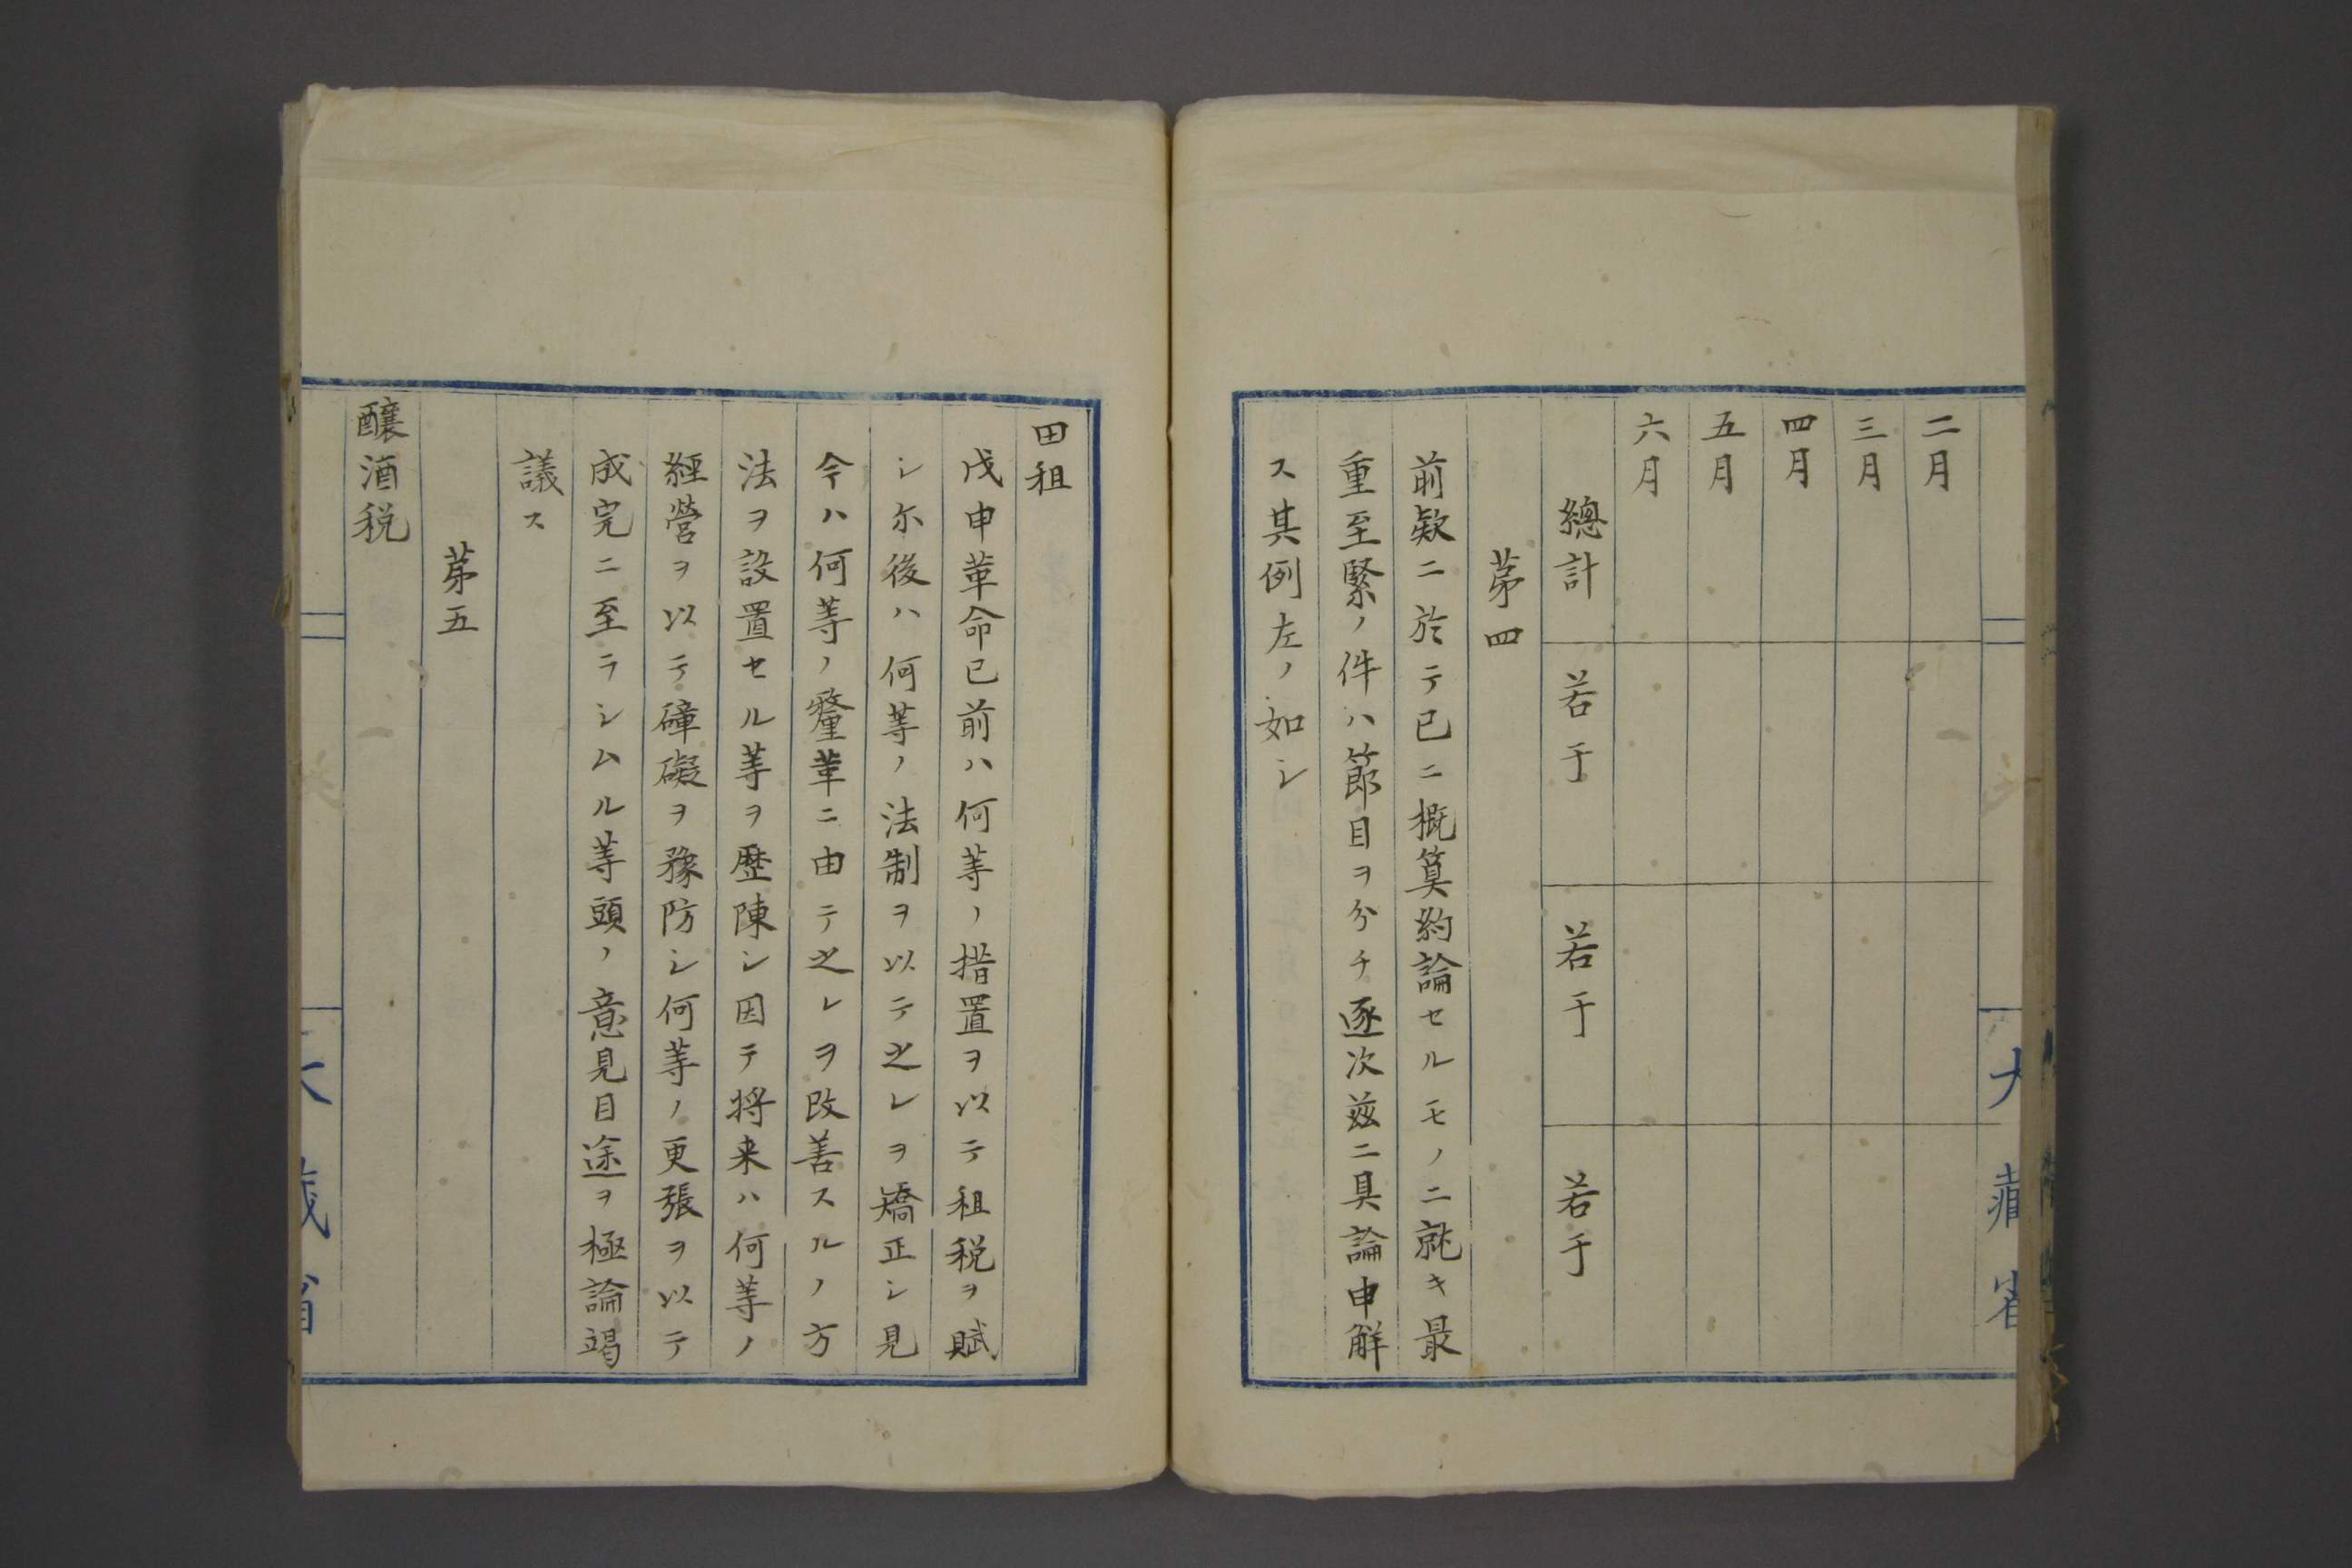 二月
三月
四月
五月
六月
總計 若干 若干 若干
苐四
前欵ニ於テ已ニ概算約論セルモノニ就キ最
重至緊ノ件ハ節目ヲ分チ逐次茲ニ具論申觧
ス其例左ノ如シ
大藏省
田租
戊申革命已前ハ何等ノ措置ヲ以テ租税ヲ賦
シ尓後ハ何等ノ法制ヲ以テ之レヲ矯正シ見
今ハ何等ノ釐革ニ由テ之レヲ改善スルノ方
法ヲ設置セル等ヲ歴陳シ因テ将来ハ何等ノ
經營ヲ以テ障礙ヲ豫防シ何等ノ更張ヲ以テ
成完ニ至ラシムル等頭ノ意見目途ヲ極論竭
議ス
苐五
醸酒税
大藏省